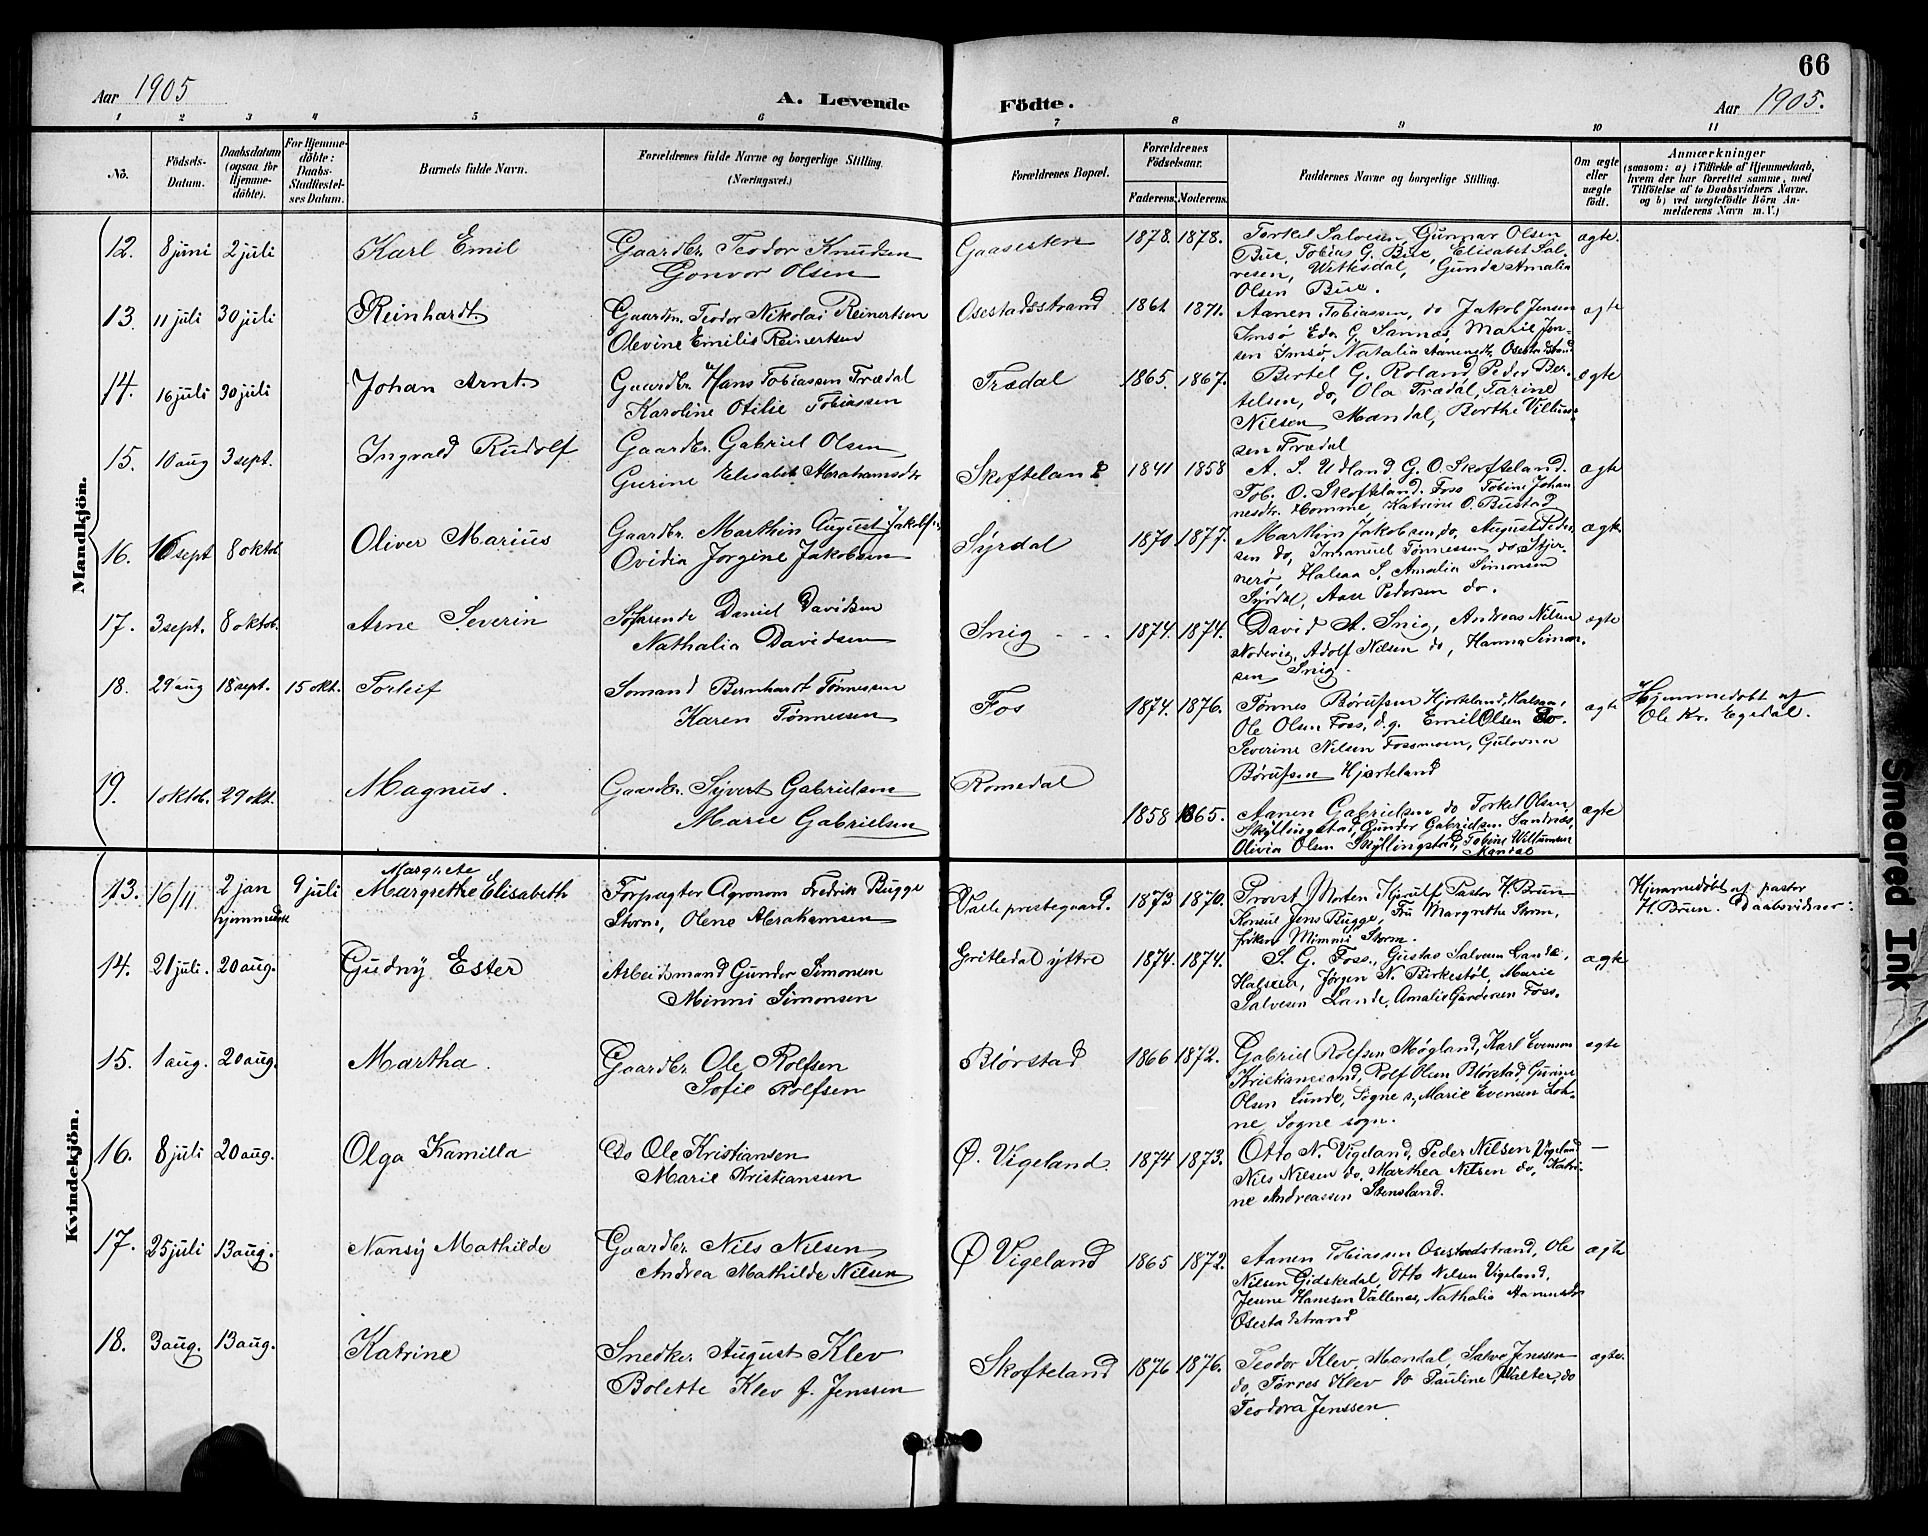 66
Aar 1905
A. Levende
Födte.
Aar 1905.
1 2 3 4 5 6 7 8 9 10 11
No.
Födsels-
Datum.
Daabsdatum
(ogsaa for
Hjemme-
døbte).
For Hjemme-
døbte:
Daabs-
Stadfæstel-
ses Datum.
Barnets fulde Navn.
Forældrenes fulde Navne og borgerlige Stilling.
(Næringsvei.)
Forældrenes Bopæl.
Forældrenes
Födselsaar.
Faderens. Moderens.
Faddernes Navne og borgerlige Stilling.
Om ægte
eller
uægte
födt.
Anmærkninger
(saasom: a) i Tilfælde af Hjemmedaab,
hvem der har forrettet samme, med
Tilföielse af to Daabsvidners Navne.
og b) ved uegtefødte Börn An-
melderens Navn m. V.)
Mandkjön.
12. 8 juni 2 juli Karl Emil
Gaardbr. Teodor Knudsen
Gonvor Olsen
Gaasesten 1878. 1878.
Torkel Salvesen, Gunnar Olsen
Bue, Tobias G. Bue, Elisabet Sal-
vesen, Witksdal, Gunda Amalia
Olsen Bue.
ægte.
13. 11 juli 30 juli Reinhardt
Gaardm. Teodor Nikolai Reinertsen
Olevine Emilie Reinertsen
Osestadsstrand 1861 1871.
Aanen Tobiassen, do Jakob Jensen
Imsø Edv. G. Sannæs, Marie Jen-
sen Imsø, Natalia Aanensdtr. Osestadstrand
ægte
14. 16 juli 30 juli Johan Arnt.
Gaardbr. Hans Tobiassen Trædal
Karoline Otilie Tobiassen
Trædal 1865. 1867.
Bertel G. Roland, Peder Ber-
telsen, do, Ola Trædal, Tarine
Nilsen Mandal, Berthe Villum-
sen Trædal
ægte
15. 10 aug 3 sept. Ingvald Rudolf
Gaardbr. Gabriel Olsen
Gurine Elisabet Abrahamsdtr
Skofteland 1841 1858
A. S. Udland G. O. Skofteland.
Tob. O. Skofteland. Foss Tobine Johan
nesdtr. Homme, Katrine O. Bustad
ægte
16. 16 sept 8 oktob. Oliver Marius
Gaardbr. Marthin August Jakobsen
Ovidia Jorgine Jakobsen
Syrdal 1870 1877.
Marthin Jakobsen, do, August Peder-
sen do, Imanuel Tønnessen do, Stjer-
nerø, Halsaa S, Amalia Simonsen
Syrdal, Aase Pedersen do.
ægte
17. 3 sept. 8 oktob. Arne Severin
Søfarende Daniel Davidsen
Nathalia Davidsen
Snig 1874. 1874.
David A. Snig, Andreas Nilsen
Nodevig, Adolf Nilsen do, Hanna Simon-
sen Snig.
ægte
18. 29 aug 18 sept. 15 okt. Torleif
Sømand Bernhardt Tønnesen
Karen Tønnesen
Fos 1874. 1876.
Tønnes Børufsen Hjorteland, Halsaa,
Ole Olsen Foss, d.g. Emil Olsen Do.
Severine Nilsen Fossmoen, Gulovna
Børufsen Hjorteland
ægte
Hjemmedøbt af
Ole Kr. Egedal.
19. 1 oktob. 29 okt. Magnus.
Gaardbr. Syvert Gabrielsen
Marie Gabrielsen
Romedal 1858 1865.
Aanen Gabrielsen do Torkel Olsen
Skyllingstad, Gunder Gabrielsen Sandnæs,
Olivia Olsen Skyllingstad, Tobine Willumsen
Mandal
ægte
Kvindekjön.
13. 16/11 2 jan 9 juli
hjemmedøbt
Margrete
Margrethe Elisabeth
Forpagter Agronom Fredrik Bugge
Storm, Olene Abrahamsen
Valle prestegaard. 1873 1870.
Provst Morten Kjerulf Pastor H. Brun
Konsul Jens Bugge, Fru Margrethe Storm,
frøken Mimmi Storm.
Hjemmedøbt af pastor
H. Brun. Daabsvidner:
14. 21 juli. 20 aug. Gudny Ester
Arbeidsmand Gunder Simonsen
Minni Simonsen
Gritledal yttre 1874. 1874.
S. G. Foss, Gustav Salvesen Lande,
Halsaa, Jørgen N. Birkestøl, Marie
Salvesen Lande, Amalie Gundersen Foss.
ægte
15. 1 aug. 20 aug. Martha.
Gaardbr. Ole Rolfsen
Sofie Rolfsen
Blørstad 1866 1872.
Gabriel Rolfsen Møgland, Karl Evensen
Kristianssand, Rolf Olsen Blørstad, Gurine
Olsen Lunde, Søgne s, Marie Evensen Loh-
ne, Søgne sogn.
ægte
16. 8 juli 20 aug. Olga Kamilla
Do Ole Kristiansen
Marie Kristianssen
Ø. Vigeland. 1874 1873.
Otto N. Vigeland, Peder Nilsen Vigeland
Nils Nilsen do, Marthea Nilsen do, Katri-
ne Andreassen Stensland.
—
17. 25 juli 13 aug. Nansy Mathilde
Gaardbr. Nils Nilsen
Andrea Mathilde Nilsen
Ø Vigeland 1865 1872.
Aanen Tobiassen Osestadstrand, Ole
Nilsen Gidskedal, Otto Nilsen Vigeland,
Jesine Hanssen Vallenes, Nathalie Aanensdtr
Osestadstrand
ægte
18. 3 aug. 13 aug. Katrine
Snedker August Klev
Bolette Klev f. Jenssen
Skofteland 1876 1876.
Teodor Klev, Mandal, Salve Jenssen
do, Torres Klev do Pauline Walter, do
Teodora Jenssen
ægte.
Smeared Ink